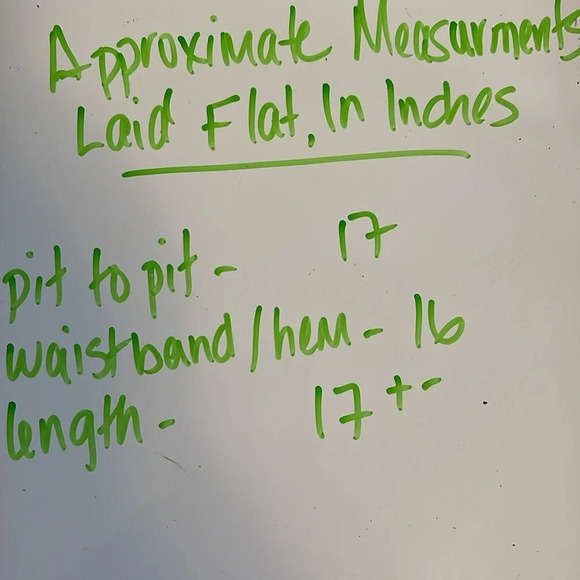 Approximate Measurments
Laid Flat, In Inches
pit to pit - 17
waistband/hem - 16
length - 17 +-